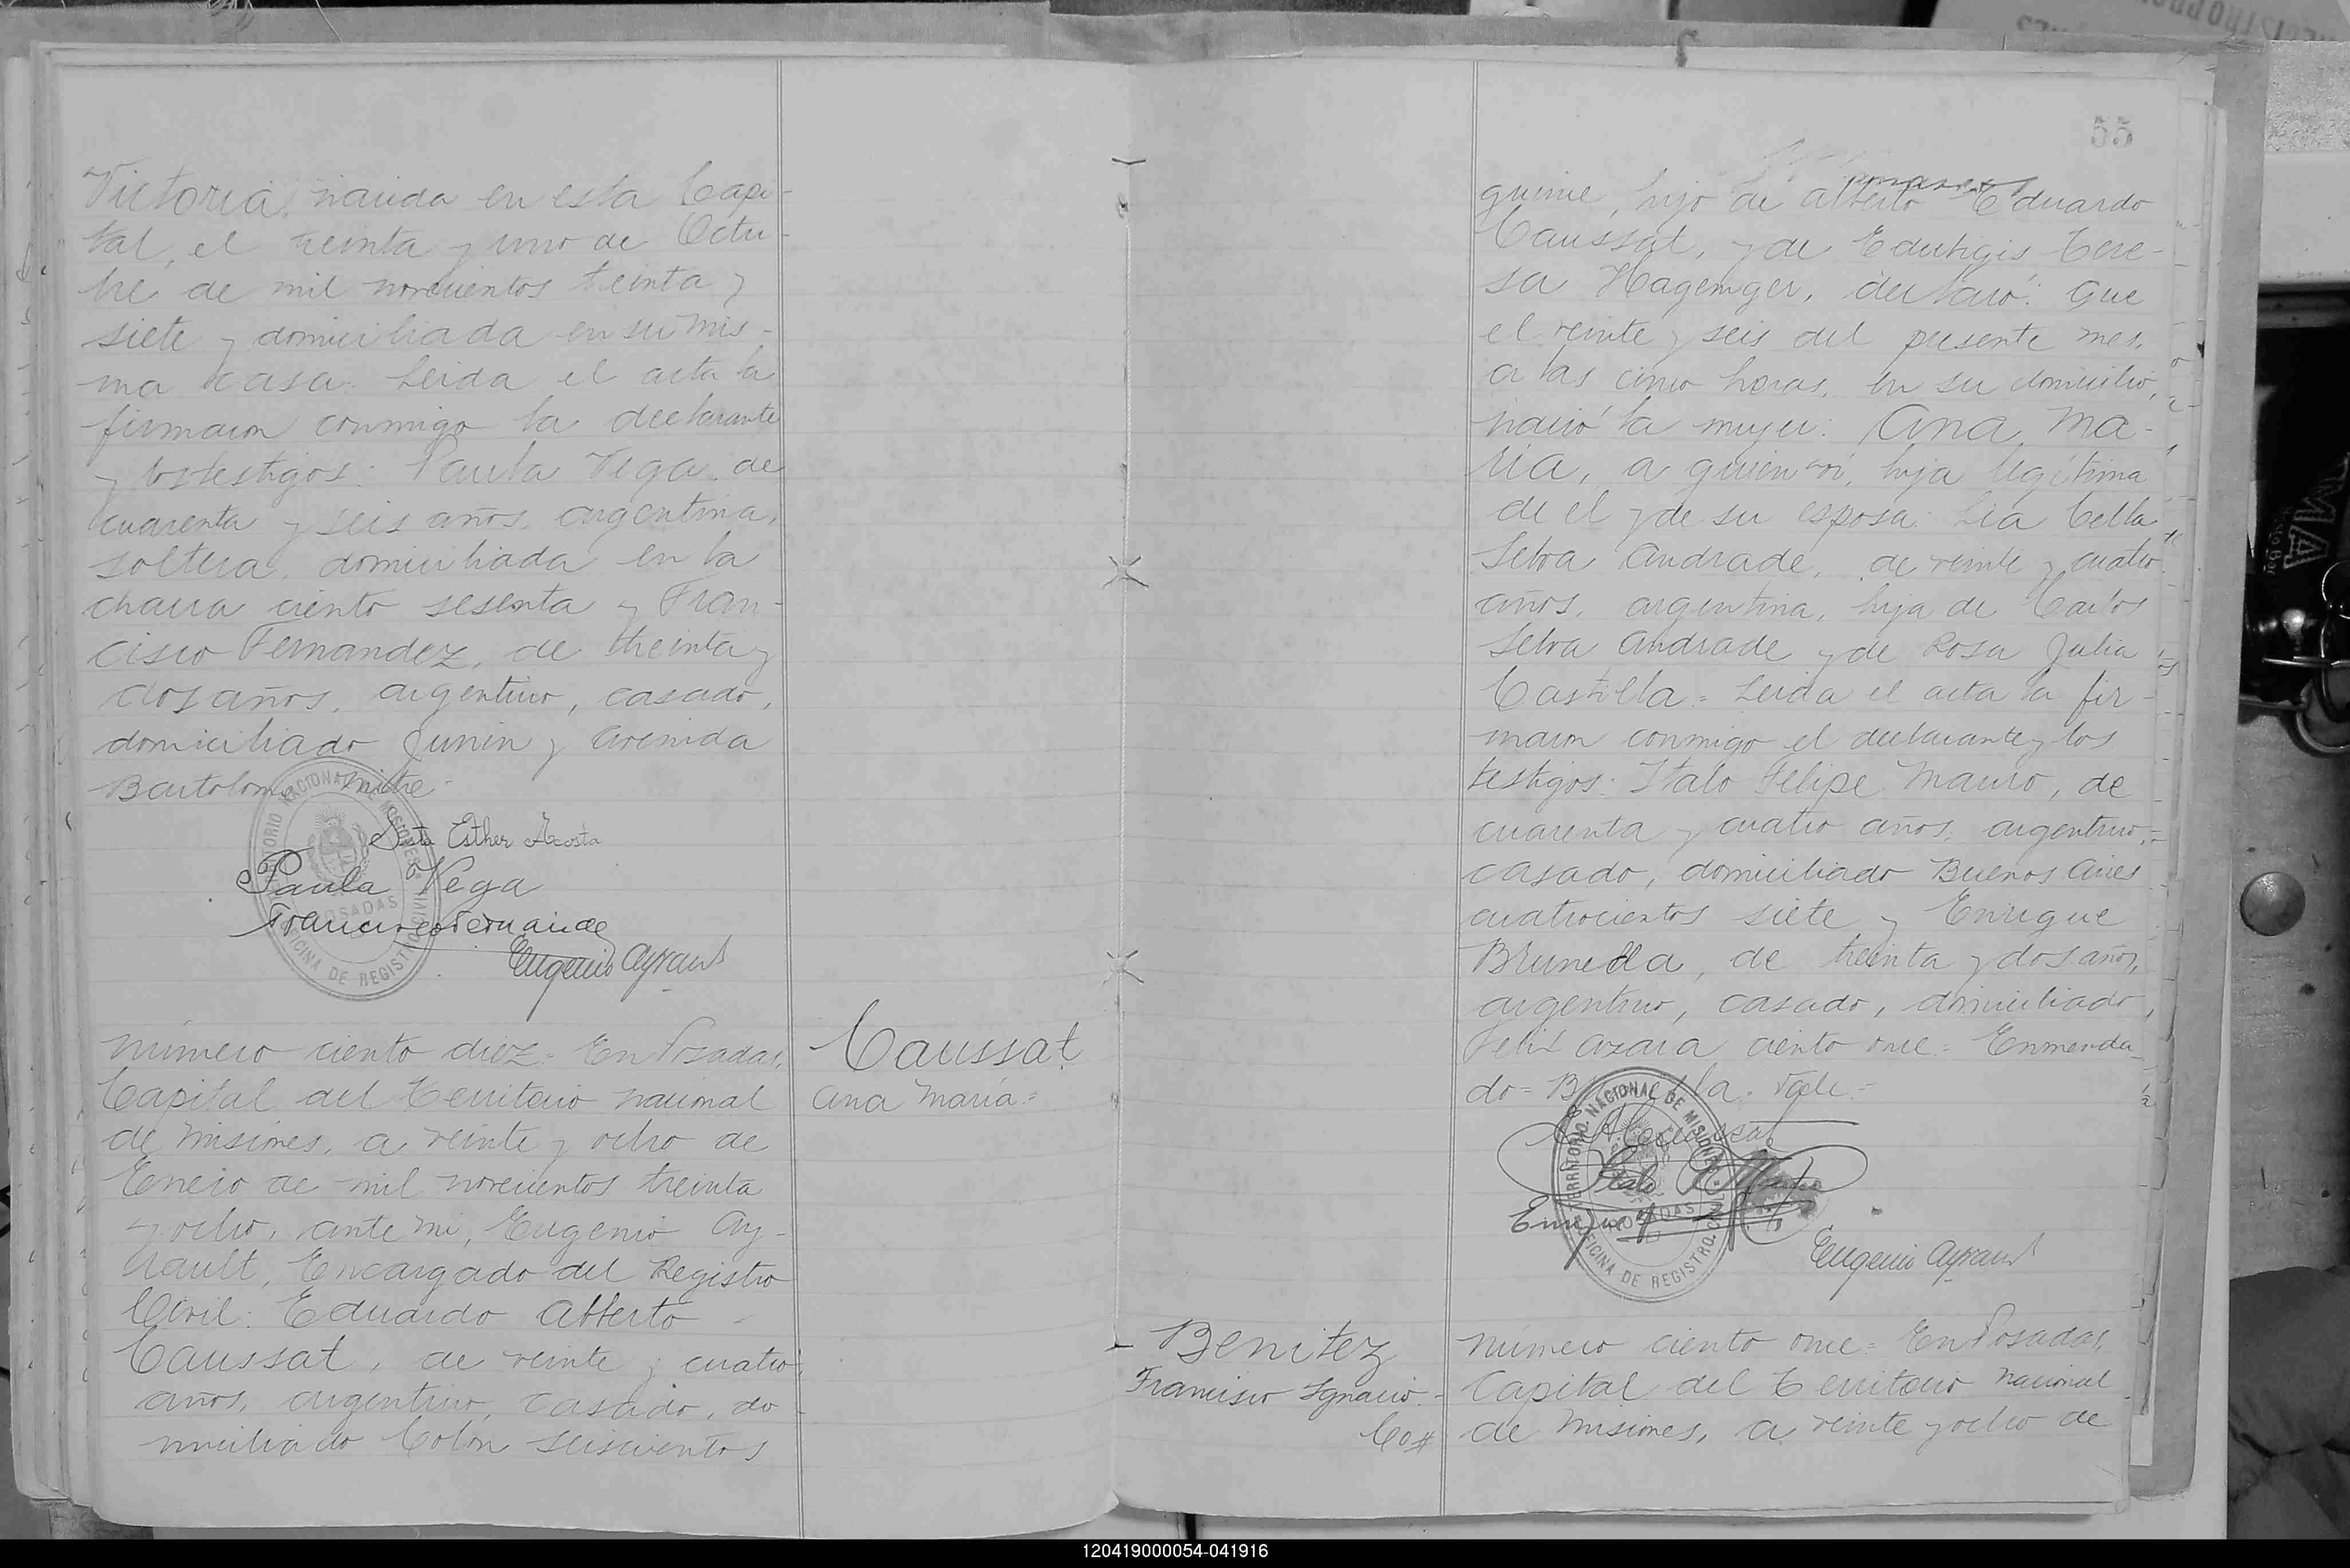 Victoria nacida en esta Capi-
tal, el treinta y uno de Octu-
bre de mil novecientos treinta y
siete y domiciliada en su mis-
ma casa. Leida el acta la
firmaron conmigo la declarante
y los testigos: Paula Vega, de
cuarenta y seis años, argentina,
soltera, domiciliada en la
chacra ciento sesenta y Fran-
cisco Fernandez, de treinta y
dos años, argentino, casado,
domiciliado Junin y Avenida
Bartolomé Mitre.
Esther Acosta
Paula Vega
Francisco Fernandez
Eugenio Ayrault
TERRITORIO NACIONAL DE MISIONES
POSADAS
OFICINA DE REGISTRO CIVIL
Número ciento diez = En Posadas,
Capital del Territorio Nacional
de Misiones, a veinte y ocho de
Enero de mil novecientos treinta
y ocho, ante mi, Eugenio Ay-
rault, Encargado del Registro
Civil: Eduardo Alberto
Caussat, de veinte y cuatro
años, argentino, casado, do-
miciliado Colon seiscientos
Caussat
Ana María =
55
quince, hijo de Alberto Eduardo
Caussat, y de Eduhigis Tere-
sa Hagemger, declaró: Que
el veinte y seis del presente mes,
a las cinco horas, en su domicilio,
nació la mujer: Ana Ma-
ria, a quien ví, hija legítima
de el y de su esposa: Lia Celia
Selva Andrade, de veinte y cuatro
años, argentina, hija de Carlos
Selva Andrade y de Rosa Julia
Castilla = Leida el acta la fir-
maron conmigo el declarante y los
testigos: Italo Felipe Mauro, de
cuarenta y cuatro años, argentino,
casado, domiciliado Buenos Aires
cuatrocientos siete y Enrique
Brunella, de treinta y dos años,
argentino, casado, domiciliado
Felix Azara ciento once = Enmenda-
do = Brunella. Vale =
Italo
Enrique
Eugenio Ayrault
TERRITORIO NACIONAL DE MISIONES
POSADAS
OFICINA DE REGISTRO CIVIL
Benitez
Francisco Ignacio =
Número ciento once = En Posadas,
Capital del Territorio Nacional
de Misiones, a veinte y ocho de
120419000054-041916